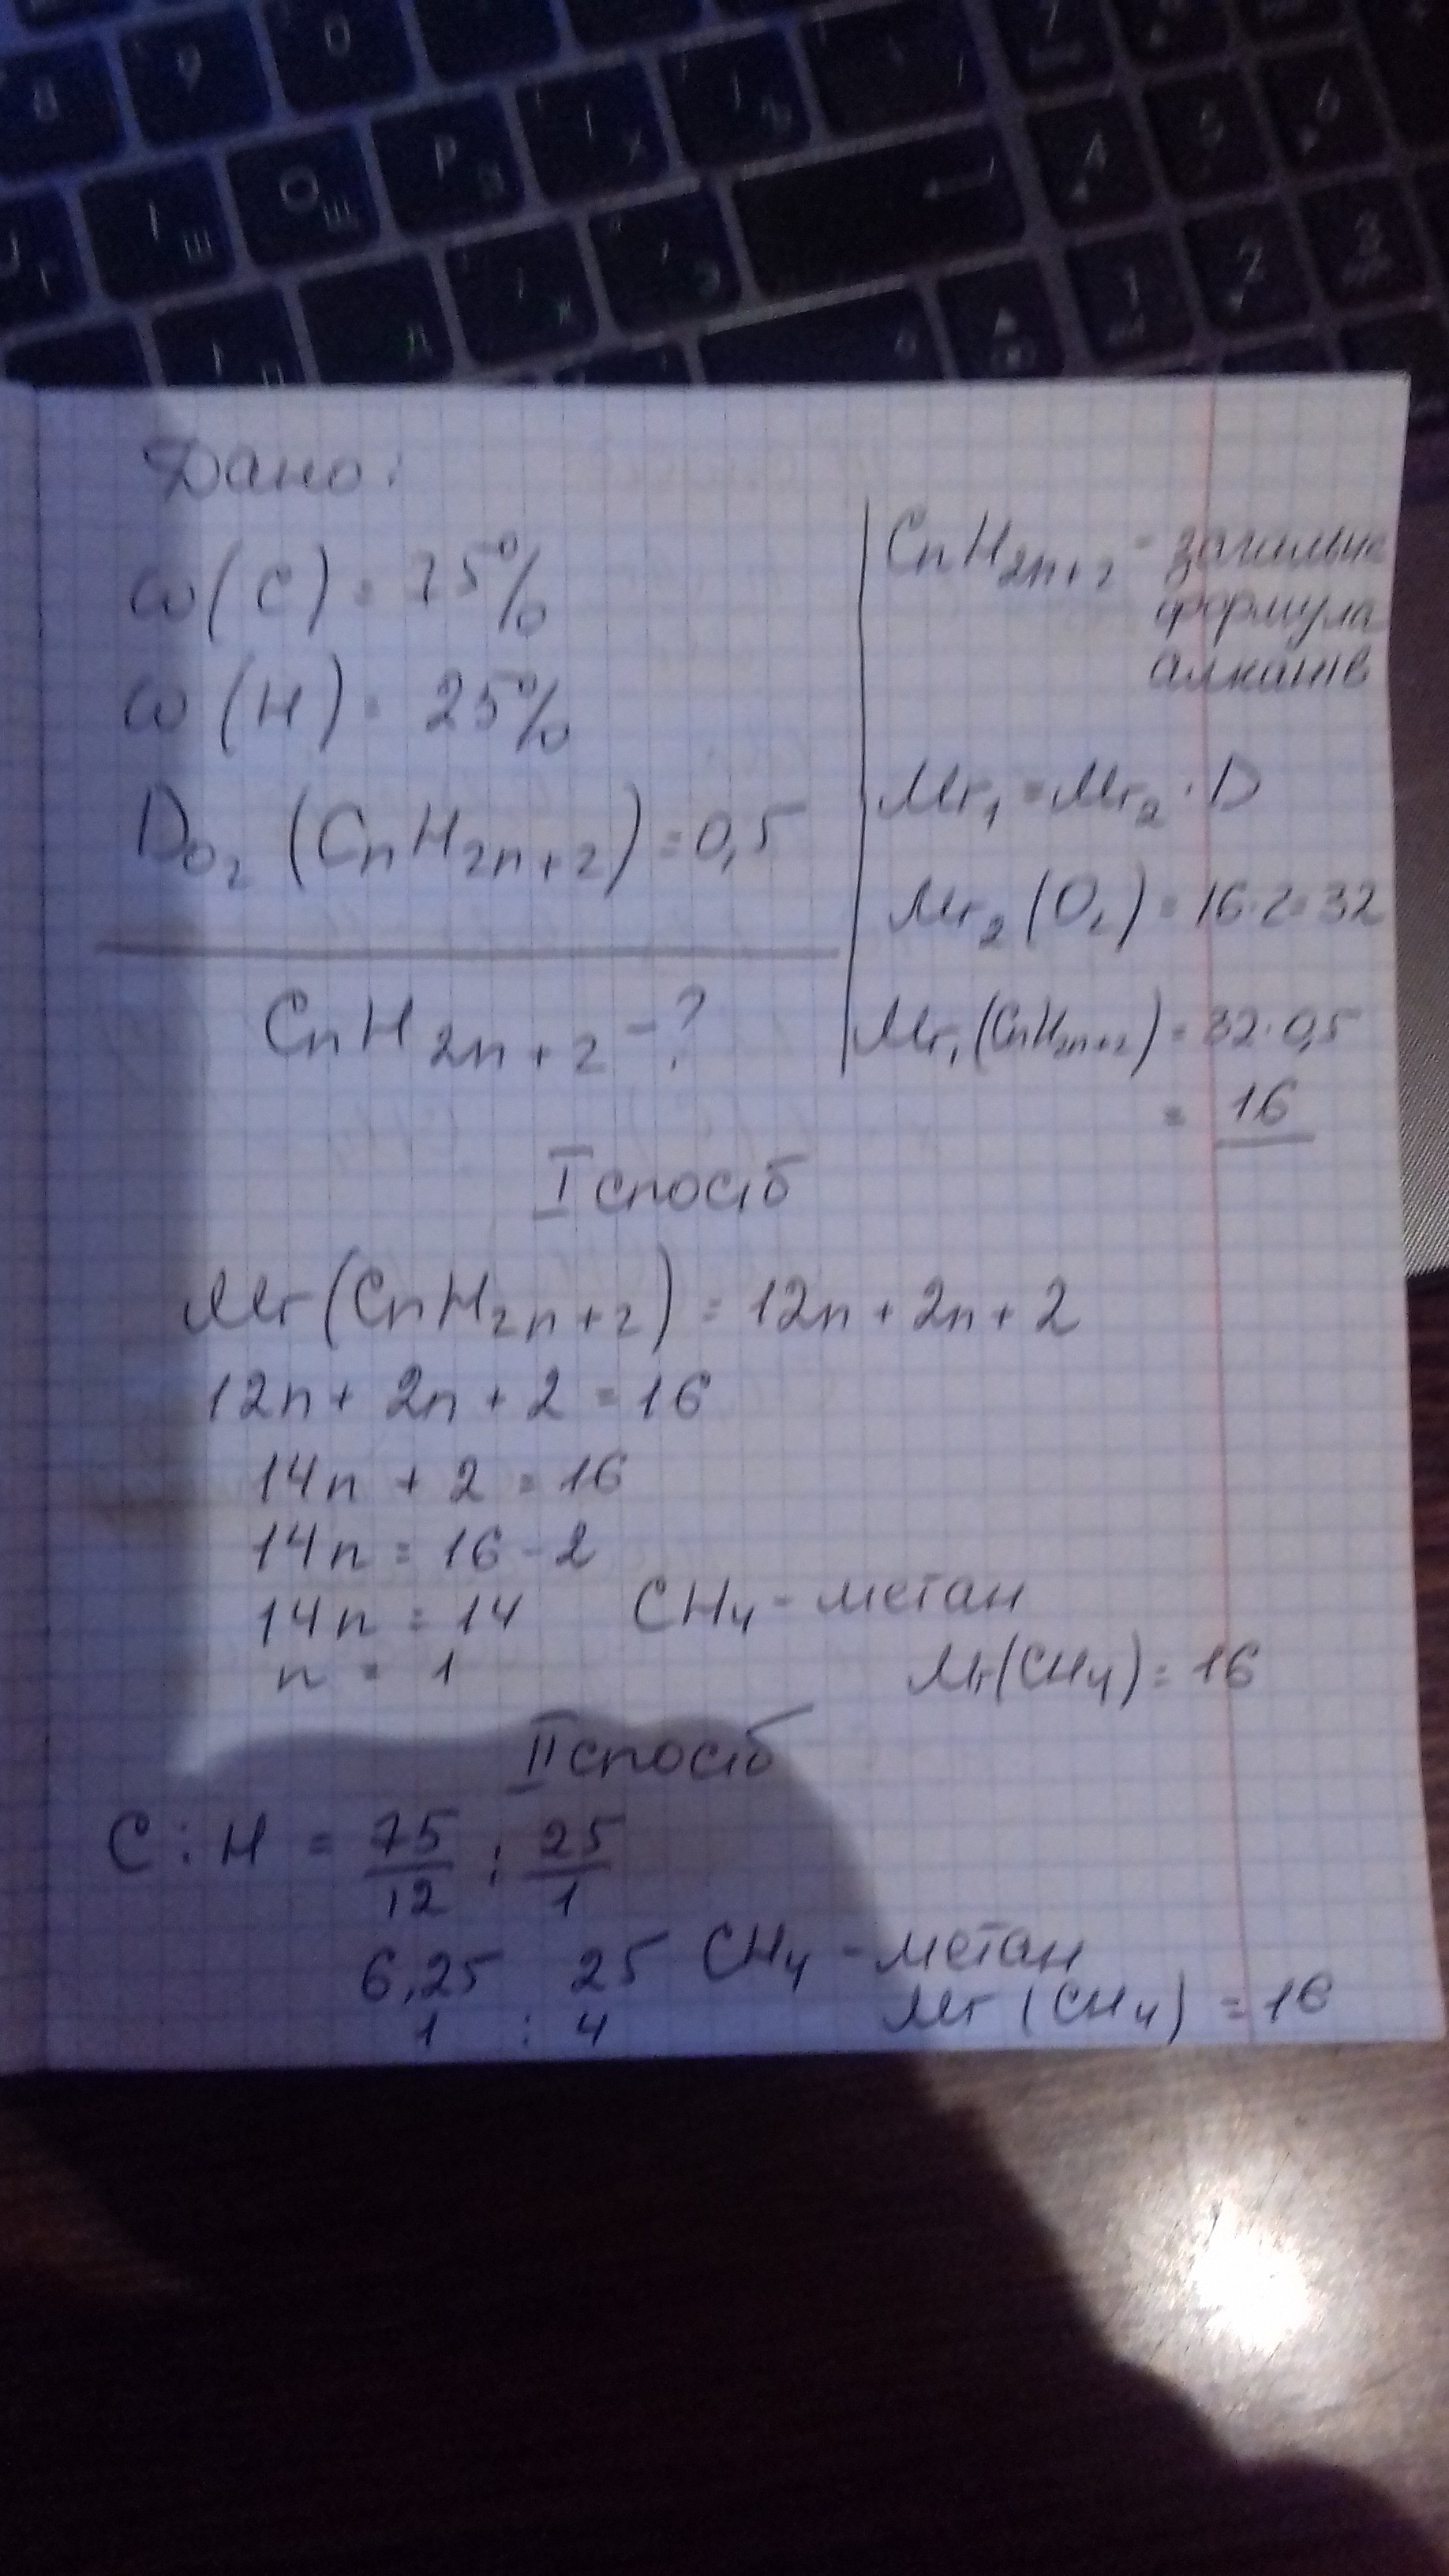 8 9 0
Р З Х Ъ 4 5 6
Ш О Щ
1 2 3
Дано:
ω(C) = 75%
ω(H) = 25%
D O₂ (CnH₂n+₂) = 0,5
CnH₂n+₂ - ?
CnH₂n+₂ - загальна
формула
алканів
Mr₁ = Mr₂ · D
Mr₂(O₂) = 16·2=32
Mr₁(CnH₂n+₂) = 32·0,5
= 16
I спосіб
Mr(CnH₂n+₂) = 12n + 2n + 2
12n + 2n + 2 = 16
14n + 2 = 16
14n = 16 - 2
14n = 14 CH₄ - метан
n = 1 Mr(CH₄) = 16
II спосіб
C : H = 75/12 : 25/1
6,25 25 CH₄ - метан
1 : 4 Mr(CH₄) = 16